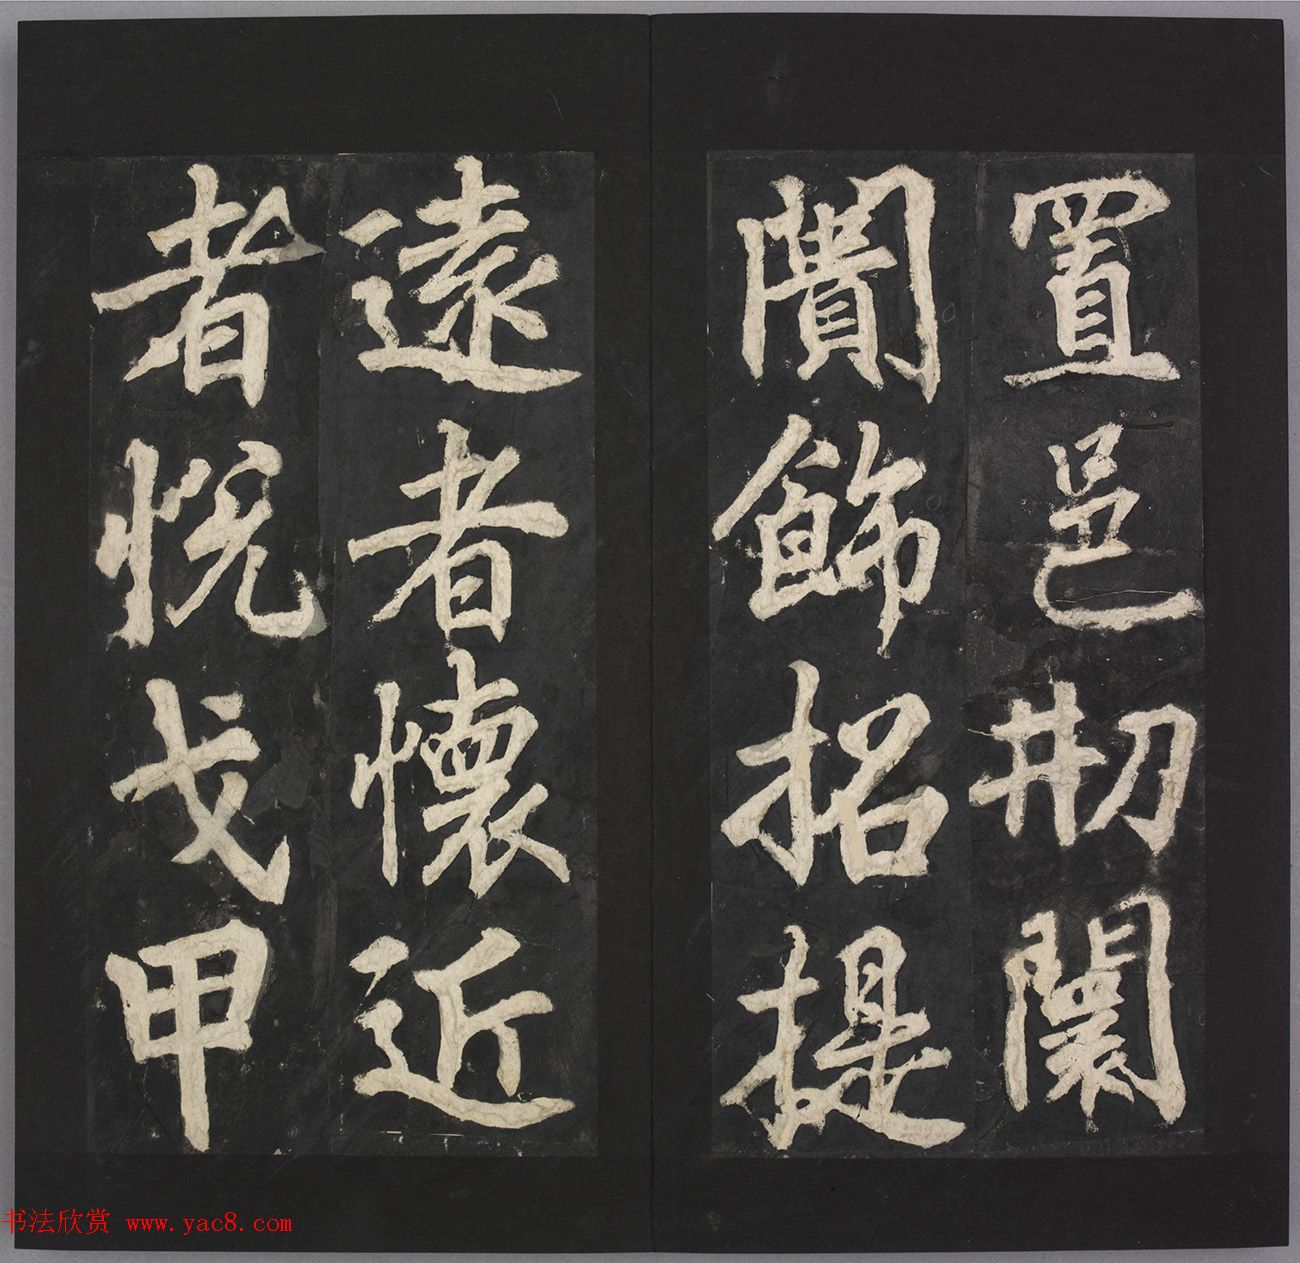 置邑刱闤
闠飾招提
遠者懷近
者悅戈甲
书法欣赏 www.yac8.com